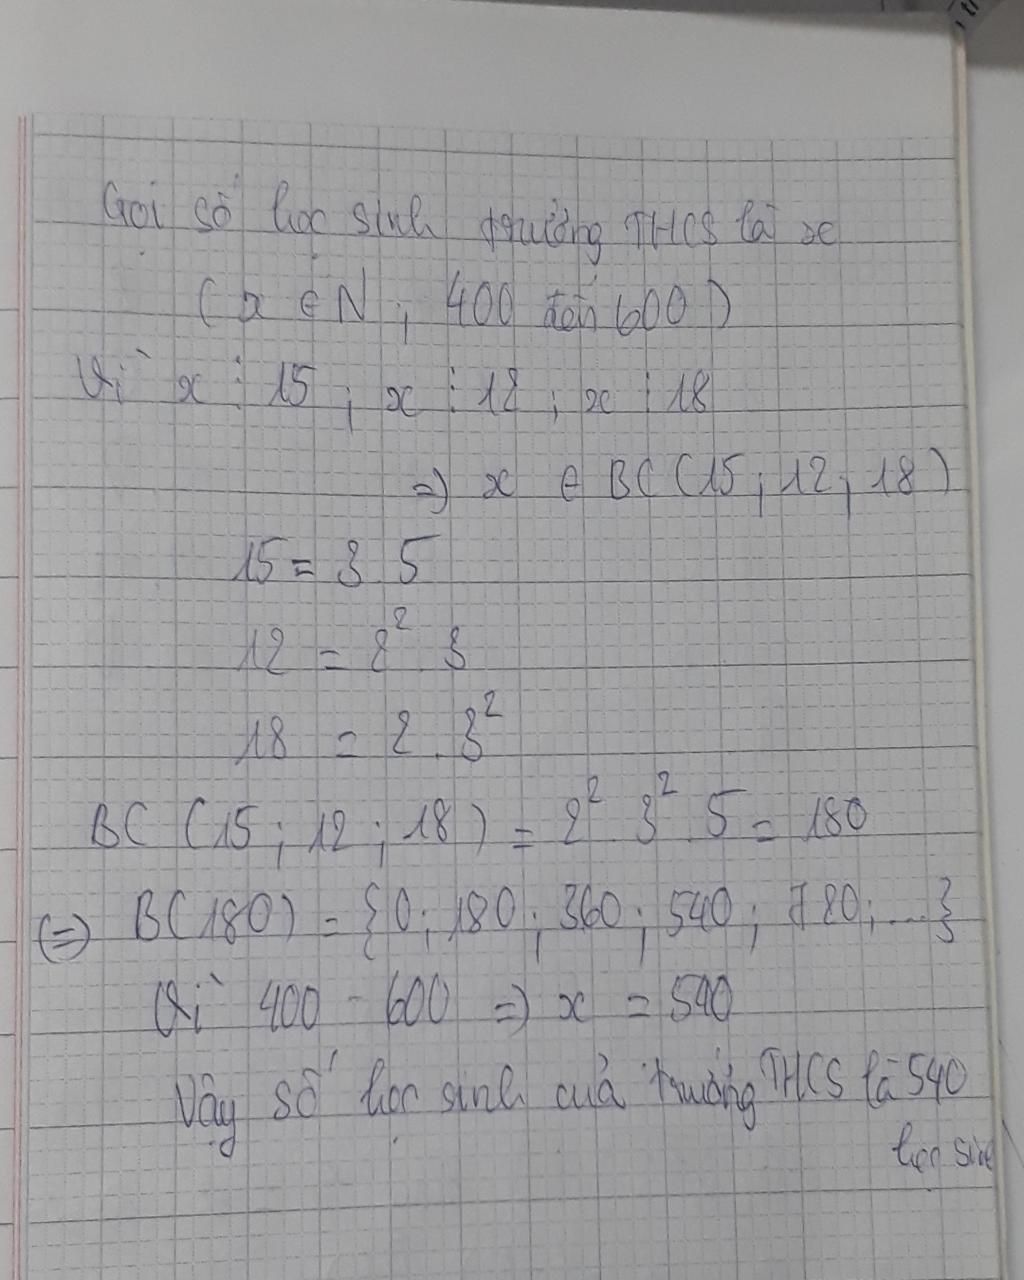 Gọi số học sinh trường THCS là x
( x ∈ N ; 400 đến 600 )
Vì x ⋮ 15 ; x ⋮ 12 ; x ⋮ 18
=> x ∈ BC (15 ; 12 ; 18 )
15 = 3 . 5
12 = 2² . 3
18 = 2 . 3²
BC (15 ; 12 ; 18 ) = 2² . 3² . 5 = 180
(=) B(180) = {0 ; 180 ; 360 ; 540 ; 720 ; ... }
Vì 400 - 600 => x = 540
Vậy số học sinh của trường THCS là 540
học sinh